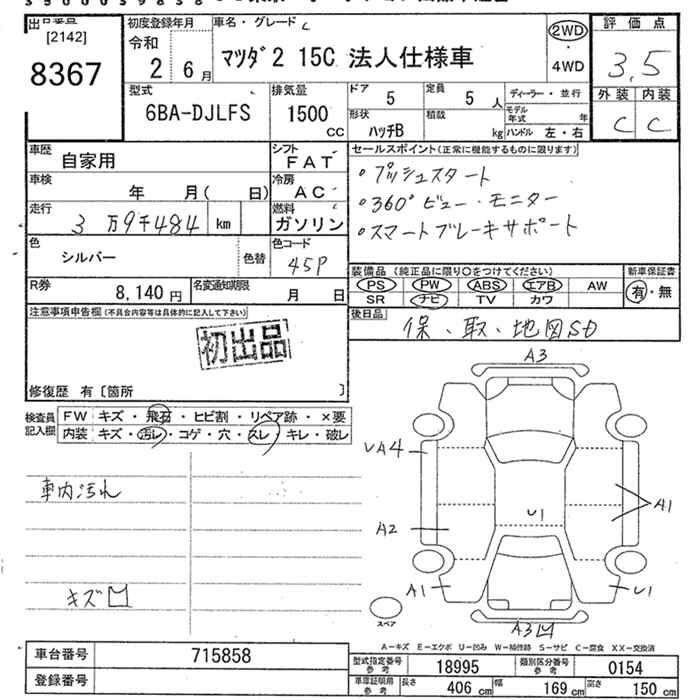 出品番号
[2142]
8367
初度登録年月
令和
2 6月
車名・グレード
マツダ2 15C 法人仕様車
2WD
・
4WD
評価点
3.5
外装 内装
C C
型式
6BA-DJLFS
排気量
1500
CC
ドア
5
定員
5 人
形状
ハッチB
積載
kg
ディーラー・並行
モデル年式 年
ハンドル 左・右
車歴
自家用
シフト
FAT
車検
年 月( 日)
冷房
AC
走行
3万9千484 km
燃料
ガソリン
色
シルバー
色替
色コード
45P
R券
8,140円
名変通知期限
月 日
セールスポイント(正常に機能するものに限ります)
・プッシュスタート
・360°ビュー・モニター
・スマートブレーキサポート
装備品 (純正品に限り○をつけてください)
PS PW ABS エアB AW
SR ナビ TV カワ
新車保証書
有・無
後日品
保、取、地図SD
注意事項申告欄(不具合内容等は具体的に記入して下さい)
初出品
修復歴 有〔箇所 〕
検査員記入欄
FW キズ・飛石・ヒビ割・リペア跡・×要
内装 キズ・汚レ・コゲ・穴・スレ・キレ・破レ
車内汚れ
キズ凹
A3
UA4
A2
A1
U1
A1
U1
A3凹
スペア
A-キズ E-エクボ U-凹み W-補修跡 S-サビ C-腐食 XX-交換済
車台番号 715858
登録番号
型式指定番号 参考 18995
類別区分番号 参考 0154
車庫証明用 参考 長さ 406 cm 幅 169 cm 高さ 150 cm